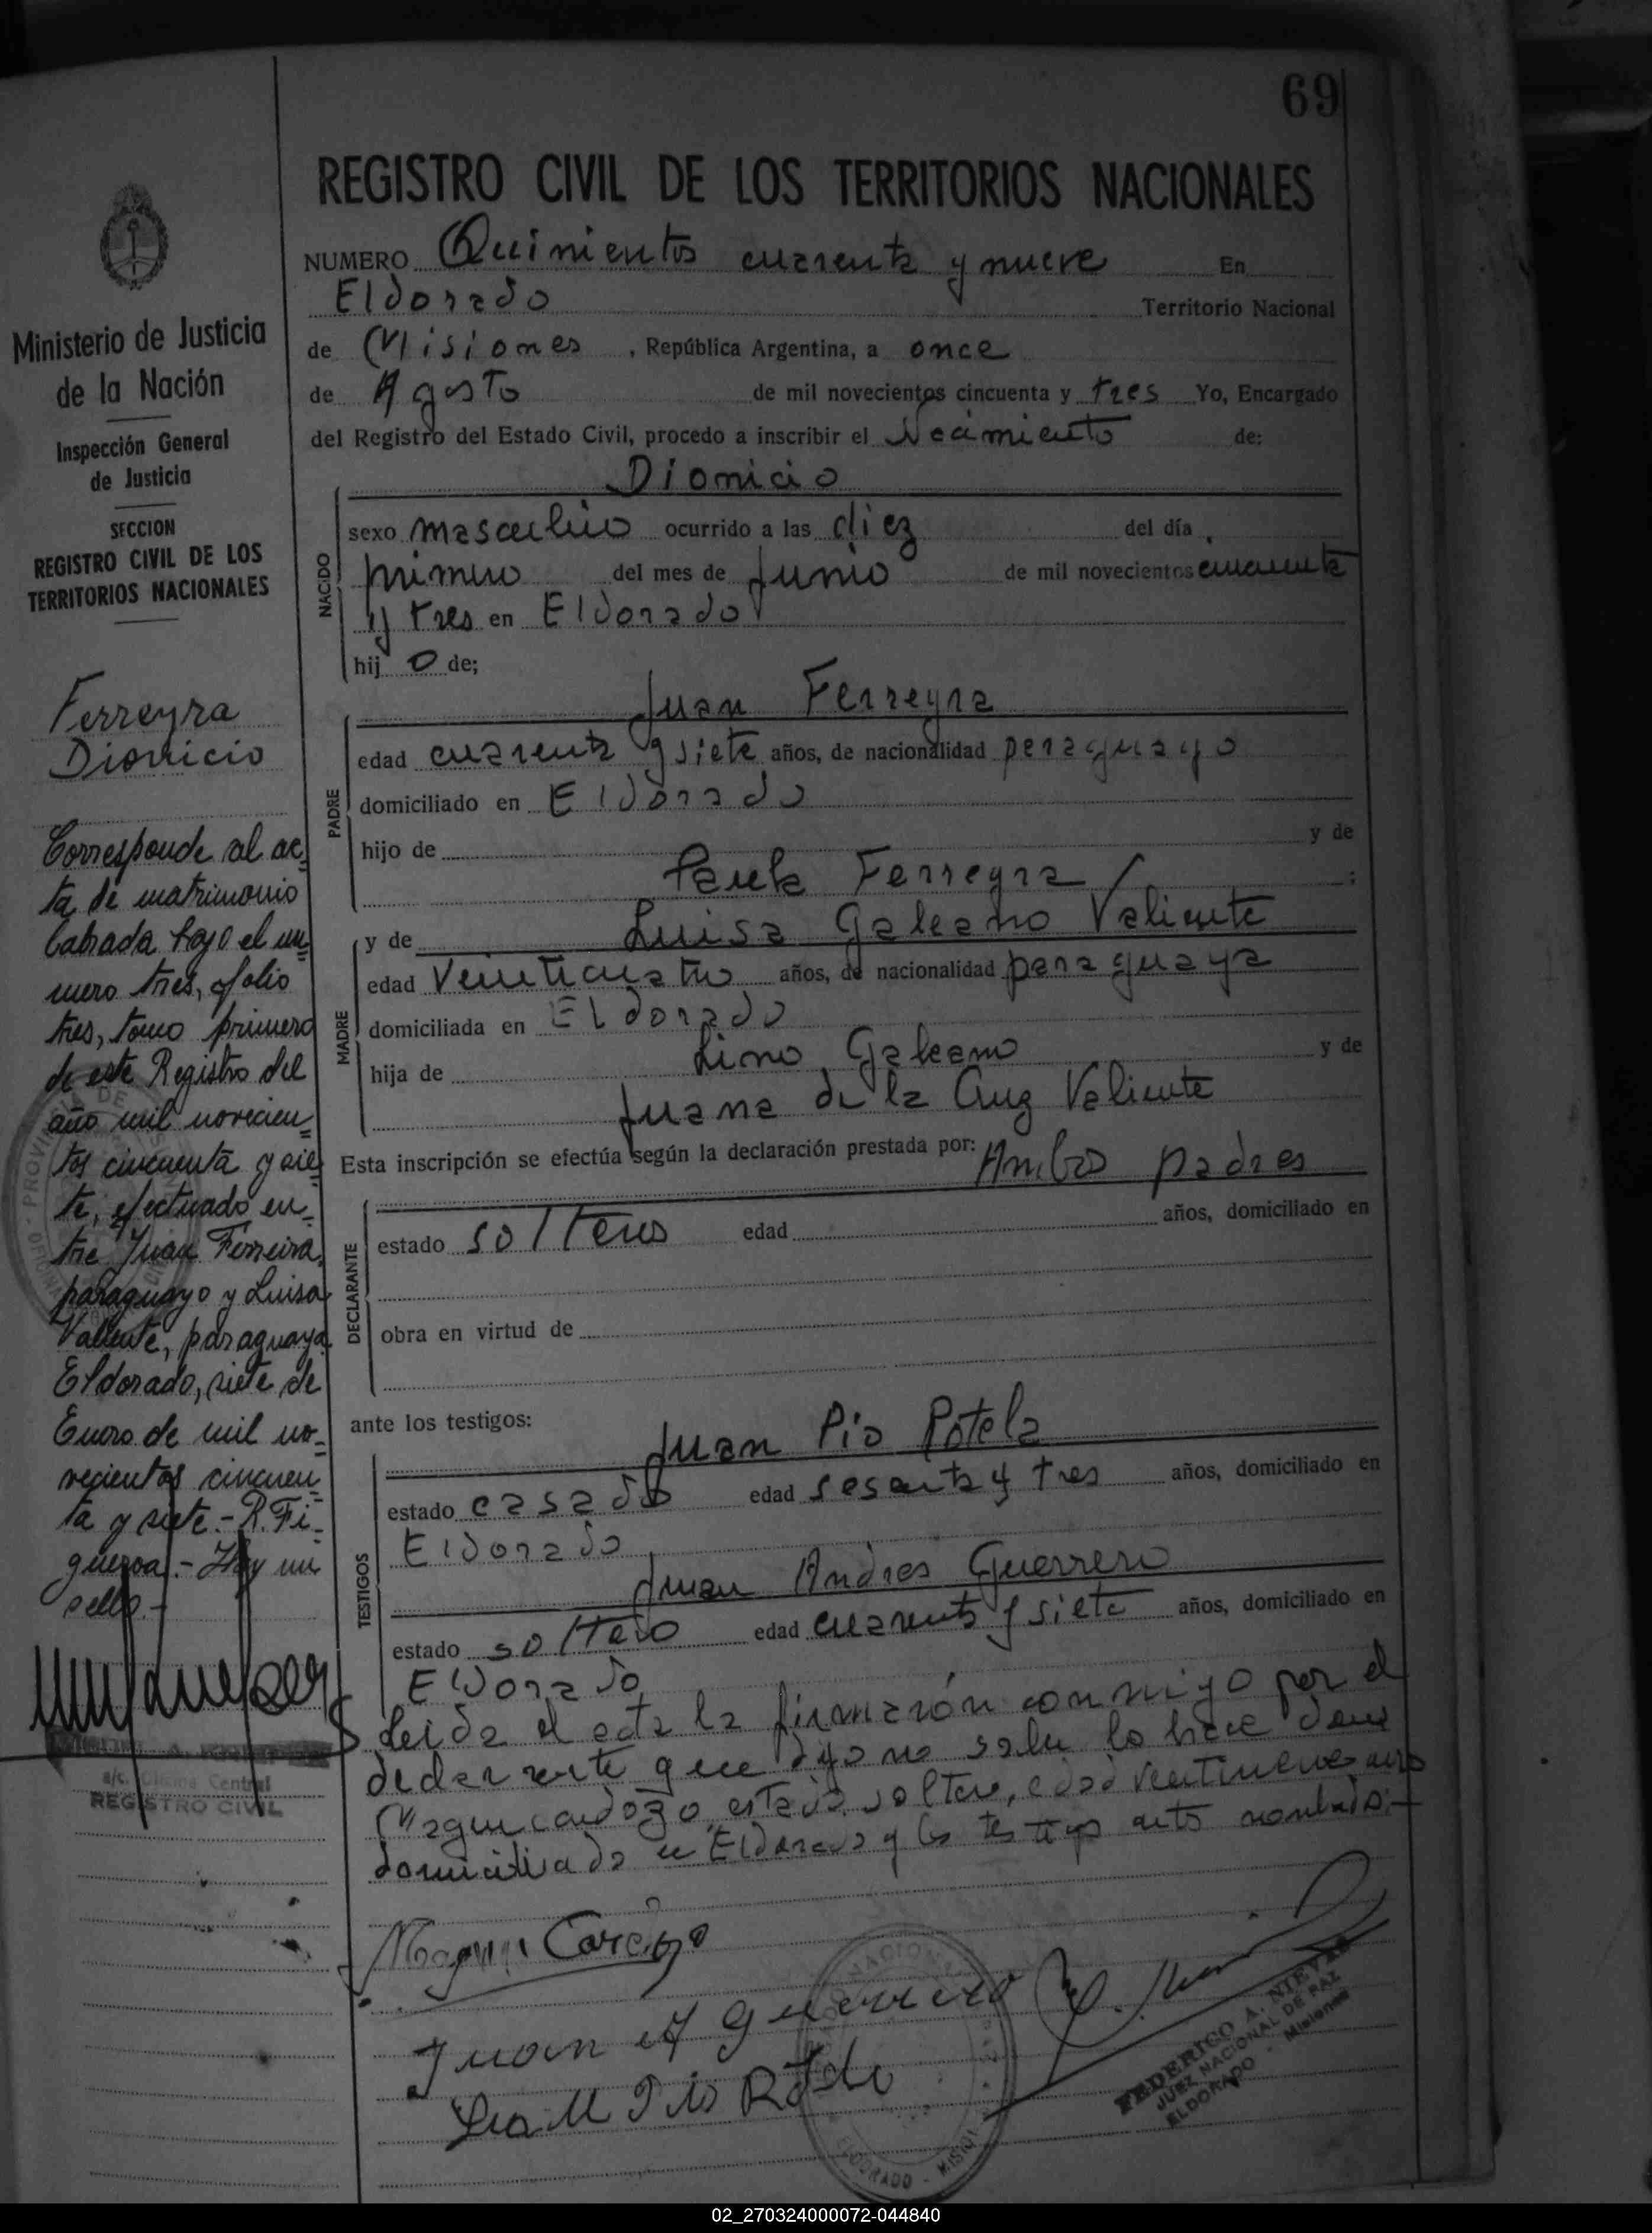 69
REGISTRO CIVIL DE LOS TERRITORIOS NACIONALES
NUMERO Quinientos cuarenta y nueve En
Eldorado Territorio Nacional
de Misiones, República Argentina, a once
de Agosto de mil novecientos cincuenta y tres Yo, Encargado
del Registro del Estado Civil, procedo a inscribir el Nacimiento de:
Dionicio
NACIDO
sexo masculino ocurrido a las diez del día
primero del mes de Junio de mil novecientos cincuenta
y tres en Eldorado
hijo de;
Juan Ferreyra
PADRE
edad cuarenta y siete años, de nacionalidad paraguayo
domiciliado en Eldorado
hijo de y de
Paula Ferreyra ;
y de Luisa Galeano Valiente
MADRE
edad Veinticuatro años, de nacionalidad paraguaya
domiciliada en Eldorado
hija de Lino Galeano y de
Juana de la Cruz Valiente
Esta inscripción se efectúa según la declaración prestada por: Ambos padres
DECLARANTE
estado solteros edad años, domiciliado en
obra en virtud de
ante los testigos:
Juan Pio Rotela
TESTIGOS
estado casado edad sesenta y tres años, domiciliado en
Eldorado
Juan Andres Guerrero
estado soltero edad cuarenta y siete años, domiciliado en
Eldorado
Leida el acta la firmarón conmigo por el
declarante que dijo no saber lo hace don
Maguin Cardozo, estado soltero, edad veintinueve años
domiciliado en Eldorado y los testigos antes nombrado.-
Maguin Cardozo
Juan A Guerrero
Juan Pio Rotela
FEDERICO A. NIEVAS
JUEZ NACIONAL DE PAZ
ELDORADO - Misiones
ELDORADO - MISIONES
Ministerio de Justicia
de la Nación
Inspección General
de Justicia
SECCION
REGISTRO CIVIL DE LOS
TERRITORIOS NACIONALES
Ferreyra
Dionicio
Corresponde al ac-
ta de matrimonio
labrada bajo el nu-
mero tres, folio
tres, tomo primero
de este Registro del
año mil novecien-
tos cincuenta y sie-
te, efectuado en-
tre Juan Ferreira,
paraguayo y Luisa
Valiente, paraguaya
Eldorado, siete de
Enero de mil no-
vecientos cincuen-
ta y siete.- R. Fi-
gueroa.- Hay un
sello.-
a/c. Oficina Central
REGISTRO CIVIL
02_270324000072-044840